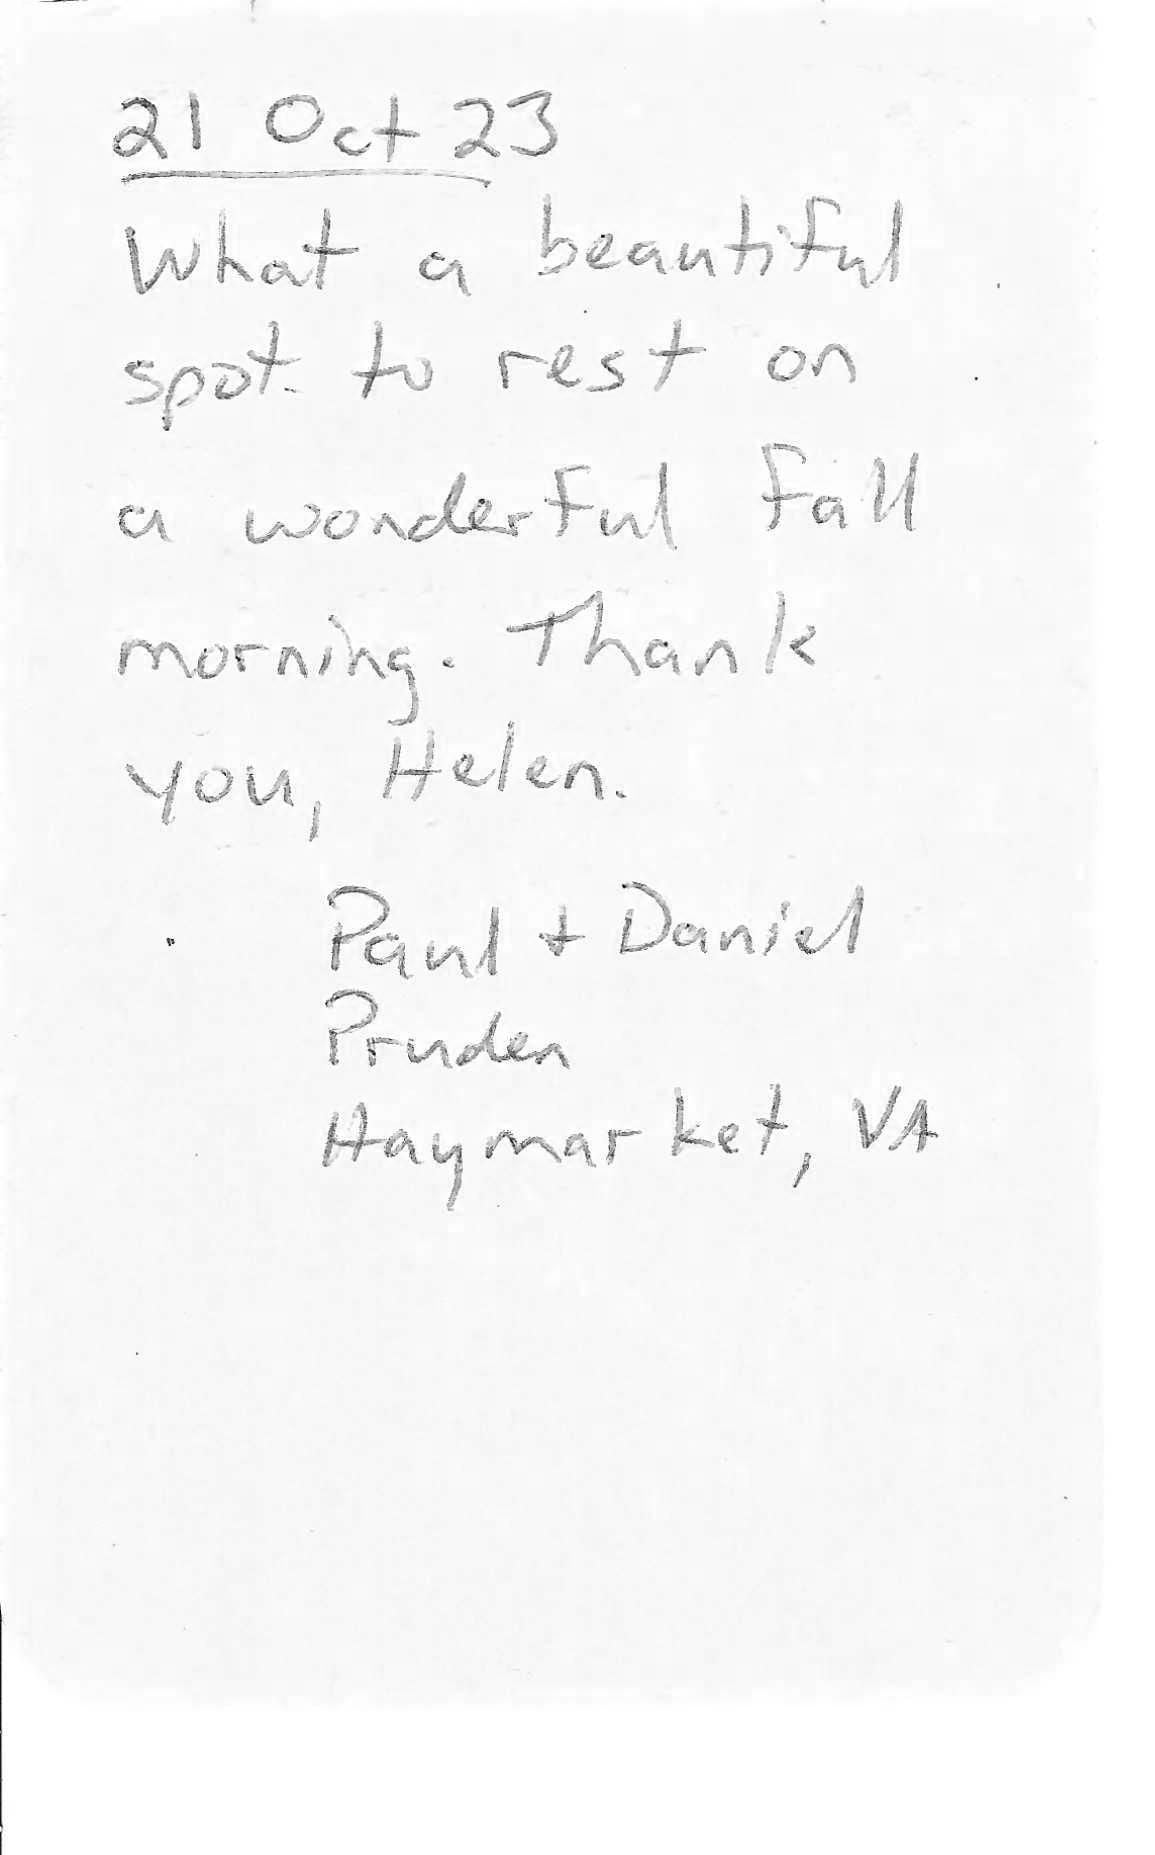 21 Oct 23
What a beautiful
spot to rest on
a wonderful fall
morning. Thank
you, Helen.
Paul + Daniel
Pruden
Haymarket, VA